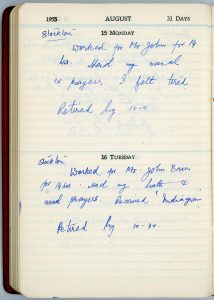 1955 AUGUST 31 DAYS
15 MONDAY
Stockton
Worked for Mr John for 14
hrs. Had my usual
prayers. I felt tired
Retired by 10-0
16 TUESDAY
Stockton
Worked for Mr. John
for 14 hrs. Had my bath &
usual prayers. Received
Retired by 10-30.